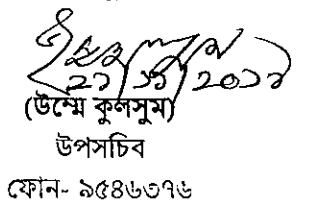 ২১/১১/২০১১
(উম্মে কুলসুম)
উপসচিব
ফোন- ৯৫৪৬৩৭৬